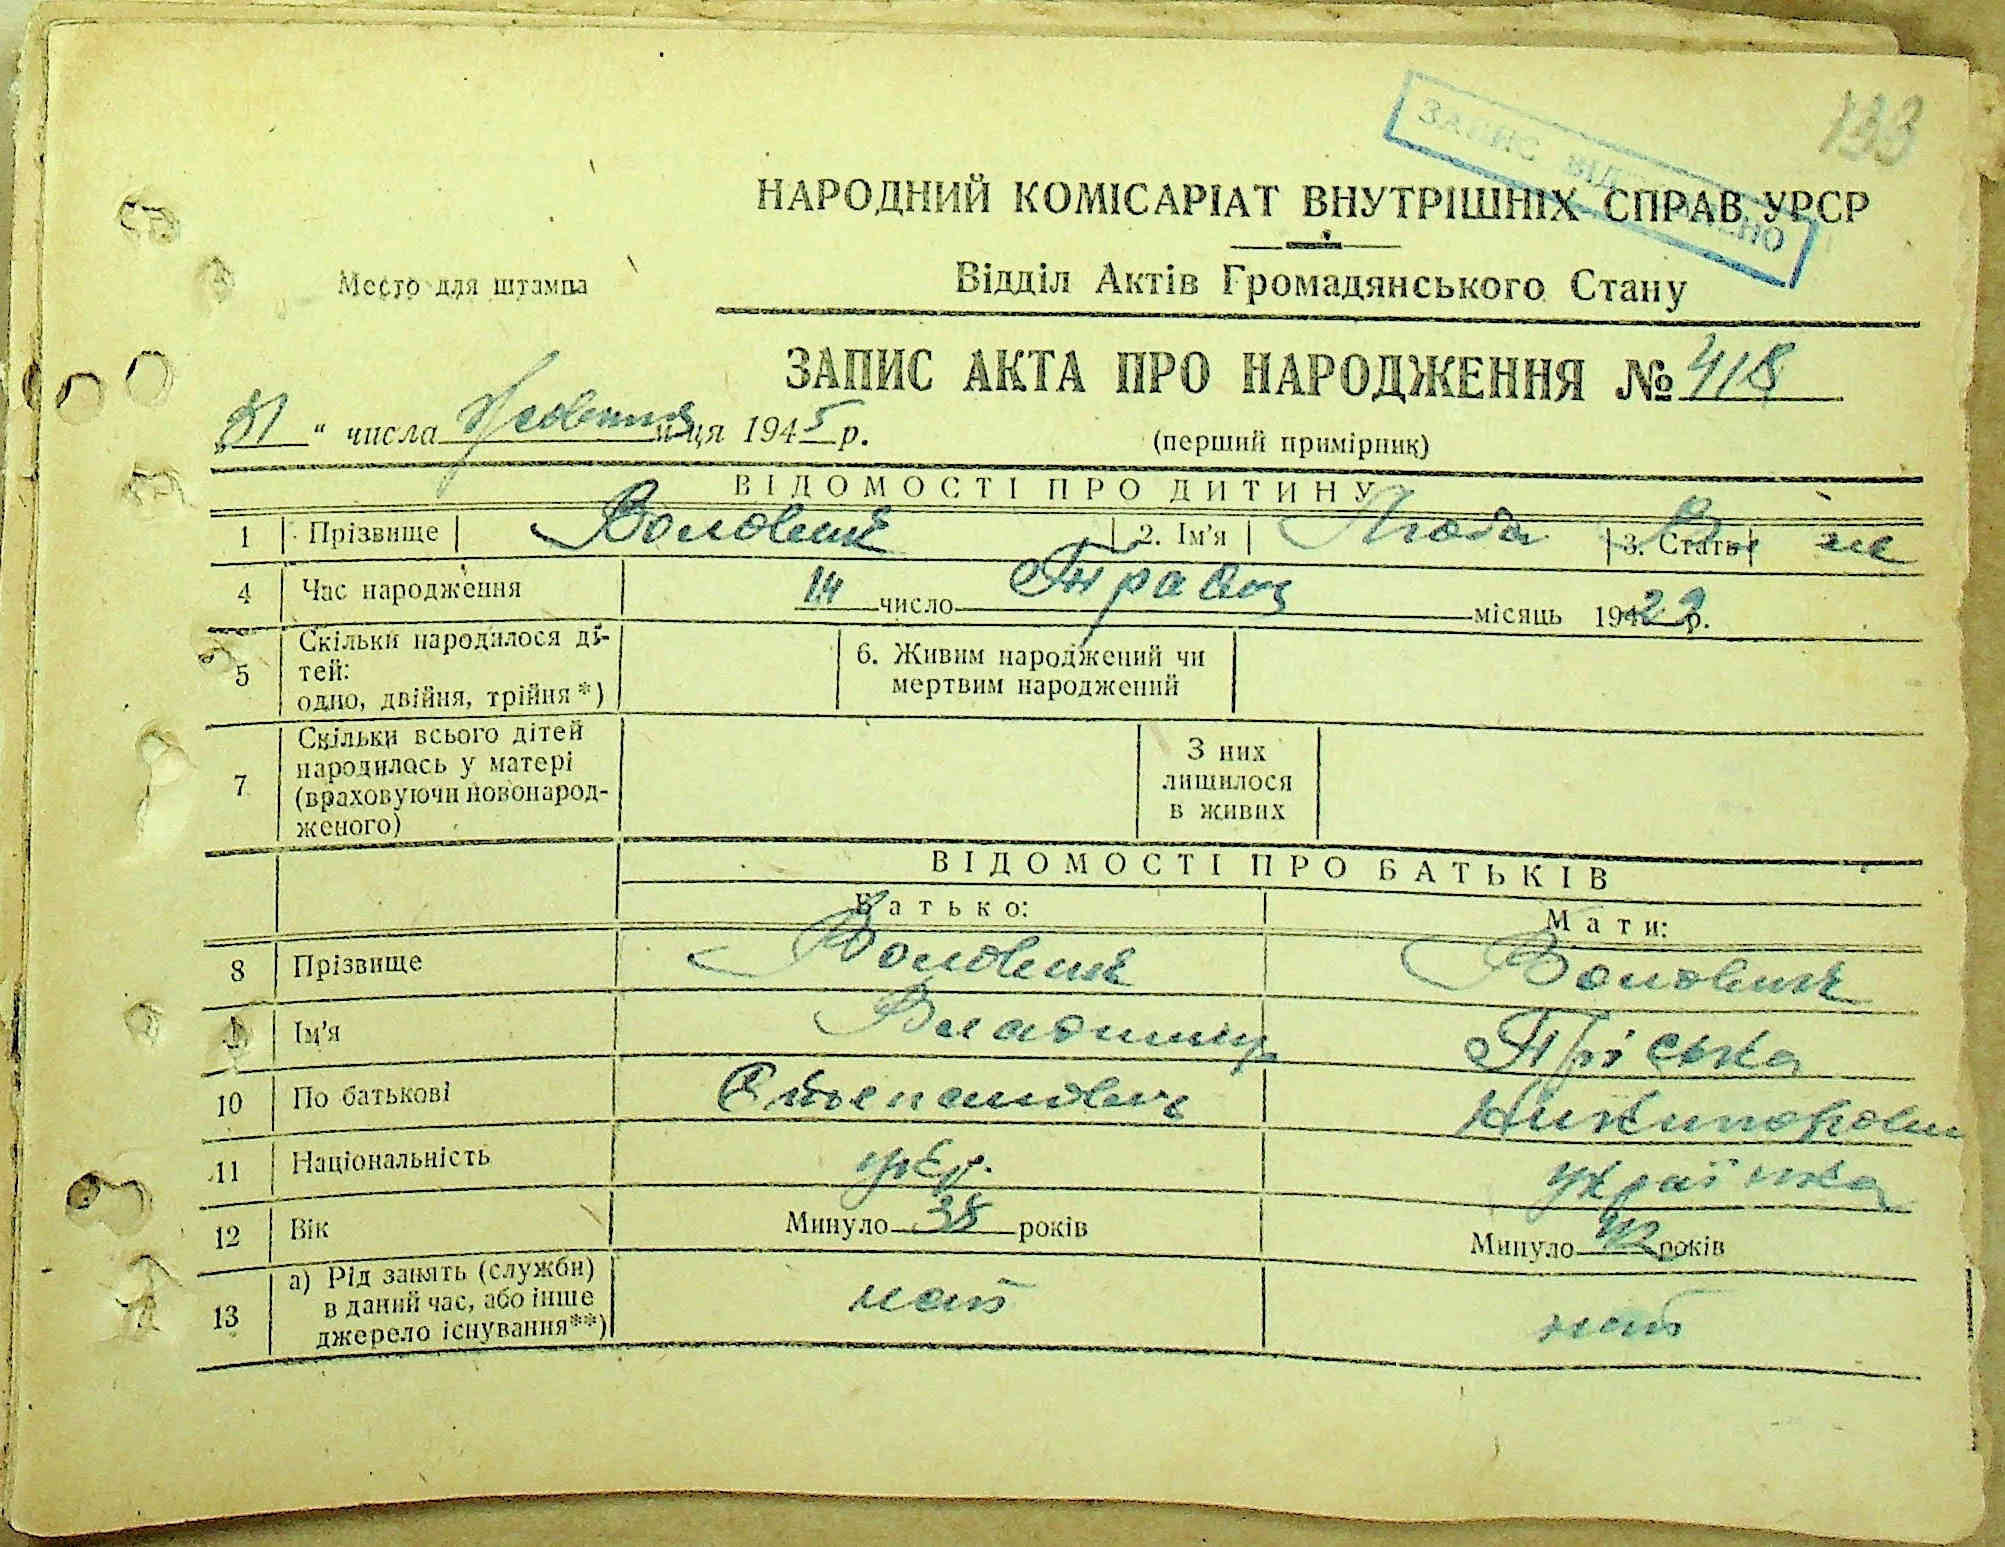 133
ЗАПИС ВІДНОВЛЕНО
НАРОДНИЙ КОМІСАРІАТ ВНУТРІШНІХ СПРАВ УРСР
Место для штампа
Відділ Актів Громадянського Стану
ЗАПИС АКТА ПРО НАРОДЖЕННЯ № 418
„31“ числа Жовтня м-ця 1945 р.
(перший примірник)
ВІДОМОСТІ ПРО ДИТИНУ
1 Прізвище Воловик 2. Ім'я Люба 3. Стать
4 Час народження 14 число Травня місяць 1929 р.
5 Скільки народилося ді-
тей:
одно, двійня, трійня *)
6. Живим народжений чи
мертвим народжений
7 Скільки всього дітей
народилось у матері
(враховуючи новонарод-
женого)
З них
лишилося
в живих
ВІДОМОСТІ ПРО БАТЬКІВ
Батько: Мати:
8 Прізвище Воловик Воловик
9 Ім'я Владимир Пріська
10 По батькові Степанович Никифоровна
11 Національність укр. українка
12 Вік Минуло 38 років Минуло 42 років
13 а) Рід занять (служби)
в даний час, або інше
джерело існування**)